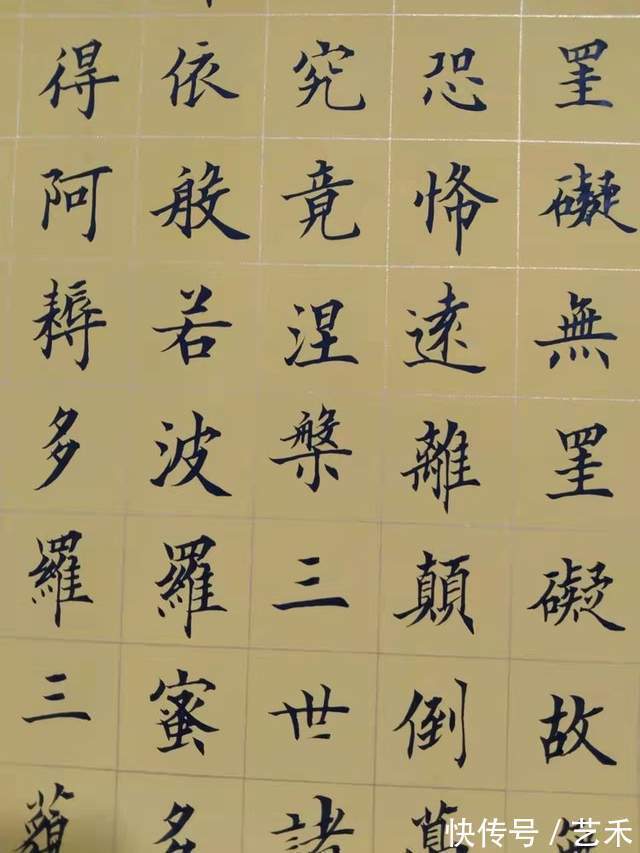 罣礙無罣礙故
恐怖遠離顛倒
究竟涅槃三世諸
依般若波羅蜜多
得阿耨多羅三藐
快传号 / 艺禾